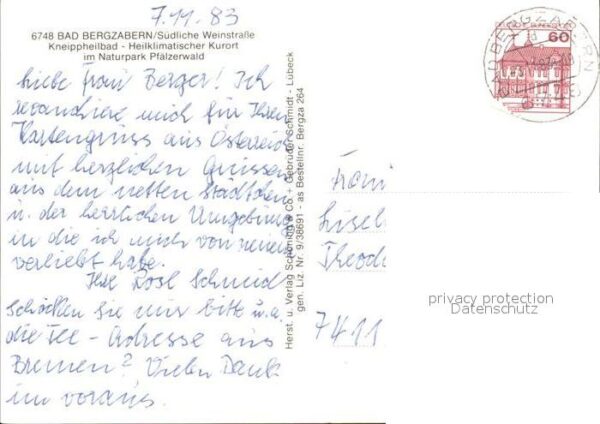 7.11.83
6748 BAD BERGZABERN/Südliche Weinstraße
Kneippheilbad - Heilklimatischer Kurort
im Naturpark Pfälzerwald
Liebe Frau Berger! Ich
revanchiere mich für Ihren
Kartengruss aus Österreich
mit herzlichen Grüssen
aus dem netten Städtchen
u. der herrlichen Umgebung
in die ich mich von neuem
verliebt habe.
Ihre Rosl Schmid
Schicken Sie mir bitte u.a.
die Tee-Adresse aus
Bremen? Vielen Dank
im voraus.
Herst. u. Verlag Schöning & Co. + Gebrüder Schmidt - Lübeck
gen. Liz. Nr. 9/38691 - as Bestellnr. Bergza 264
60
BAD BERGZABERN
Frau
Lisel
Theod
7411
privacy protection
Datenschutz